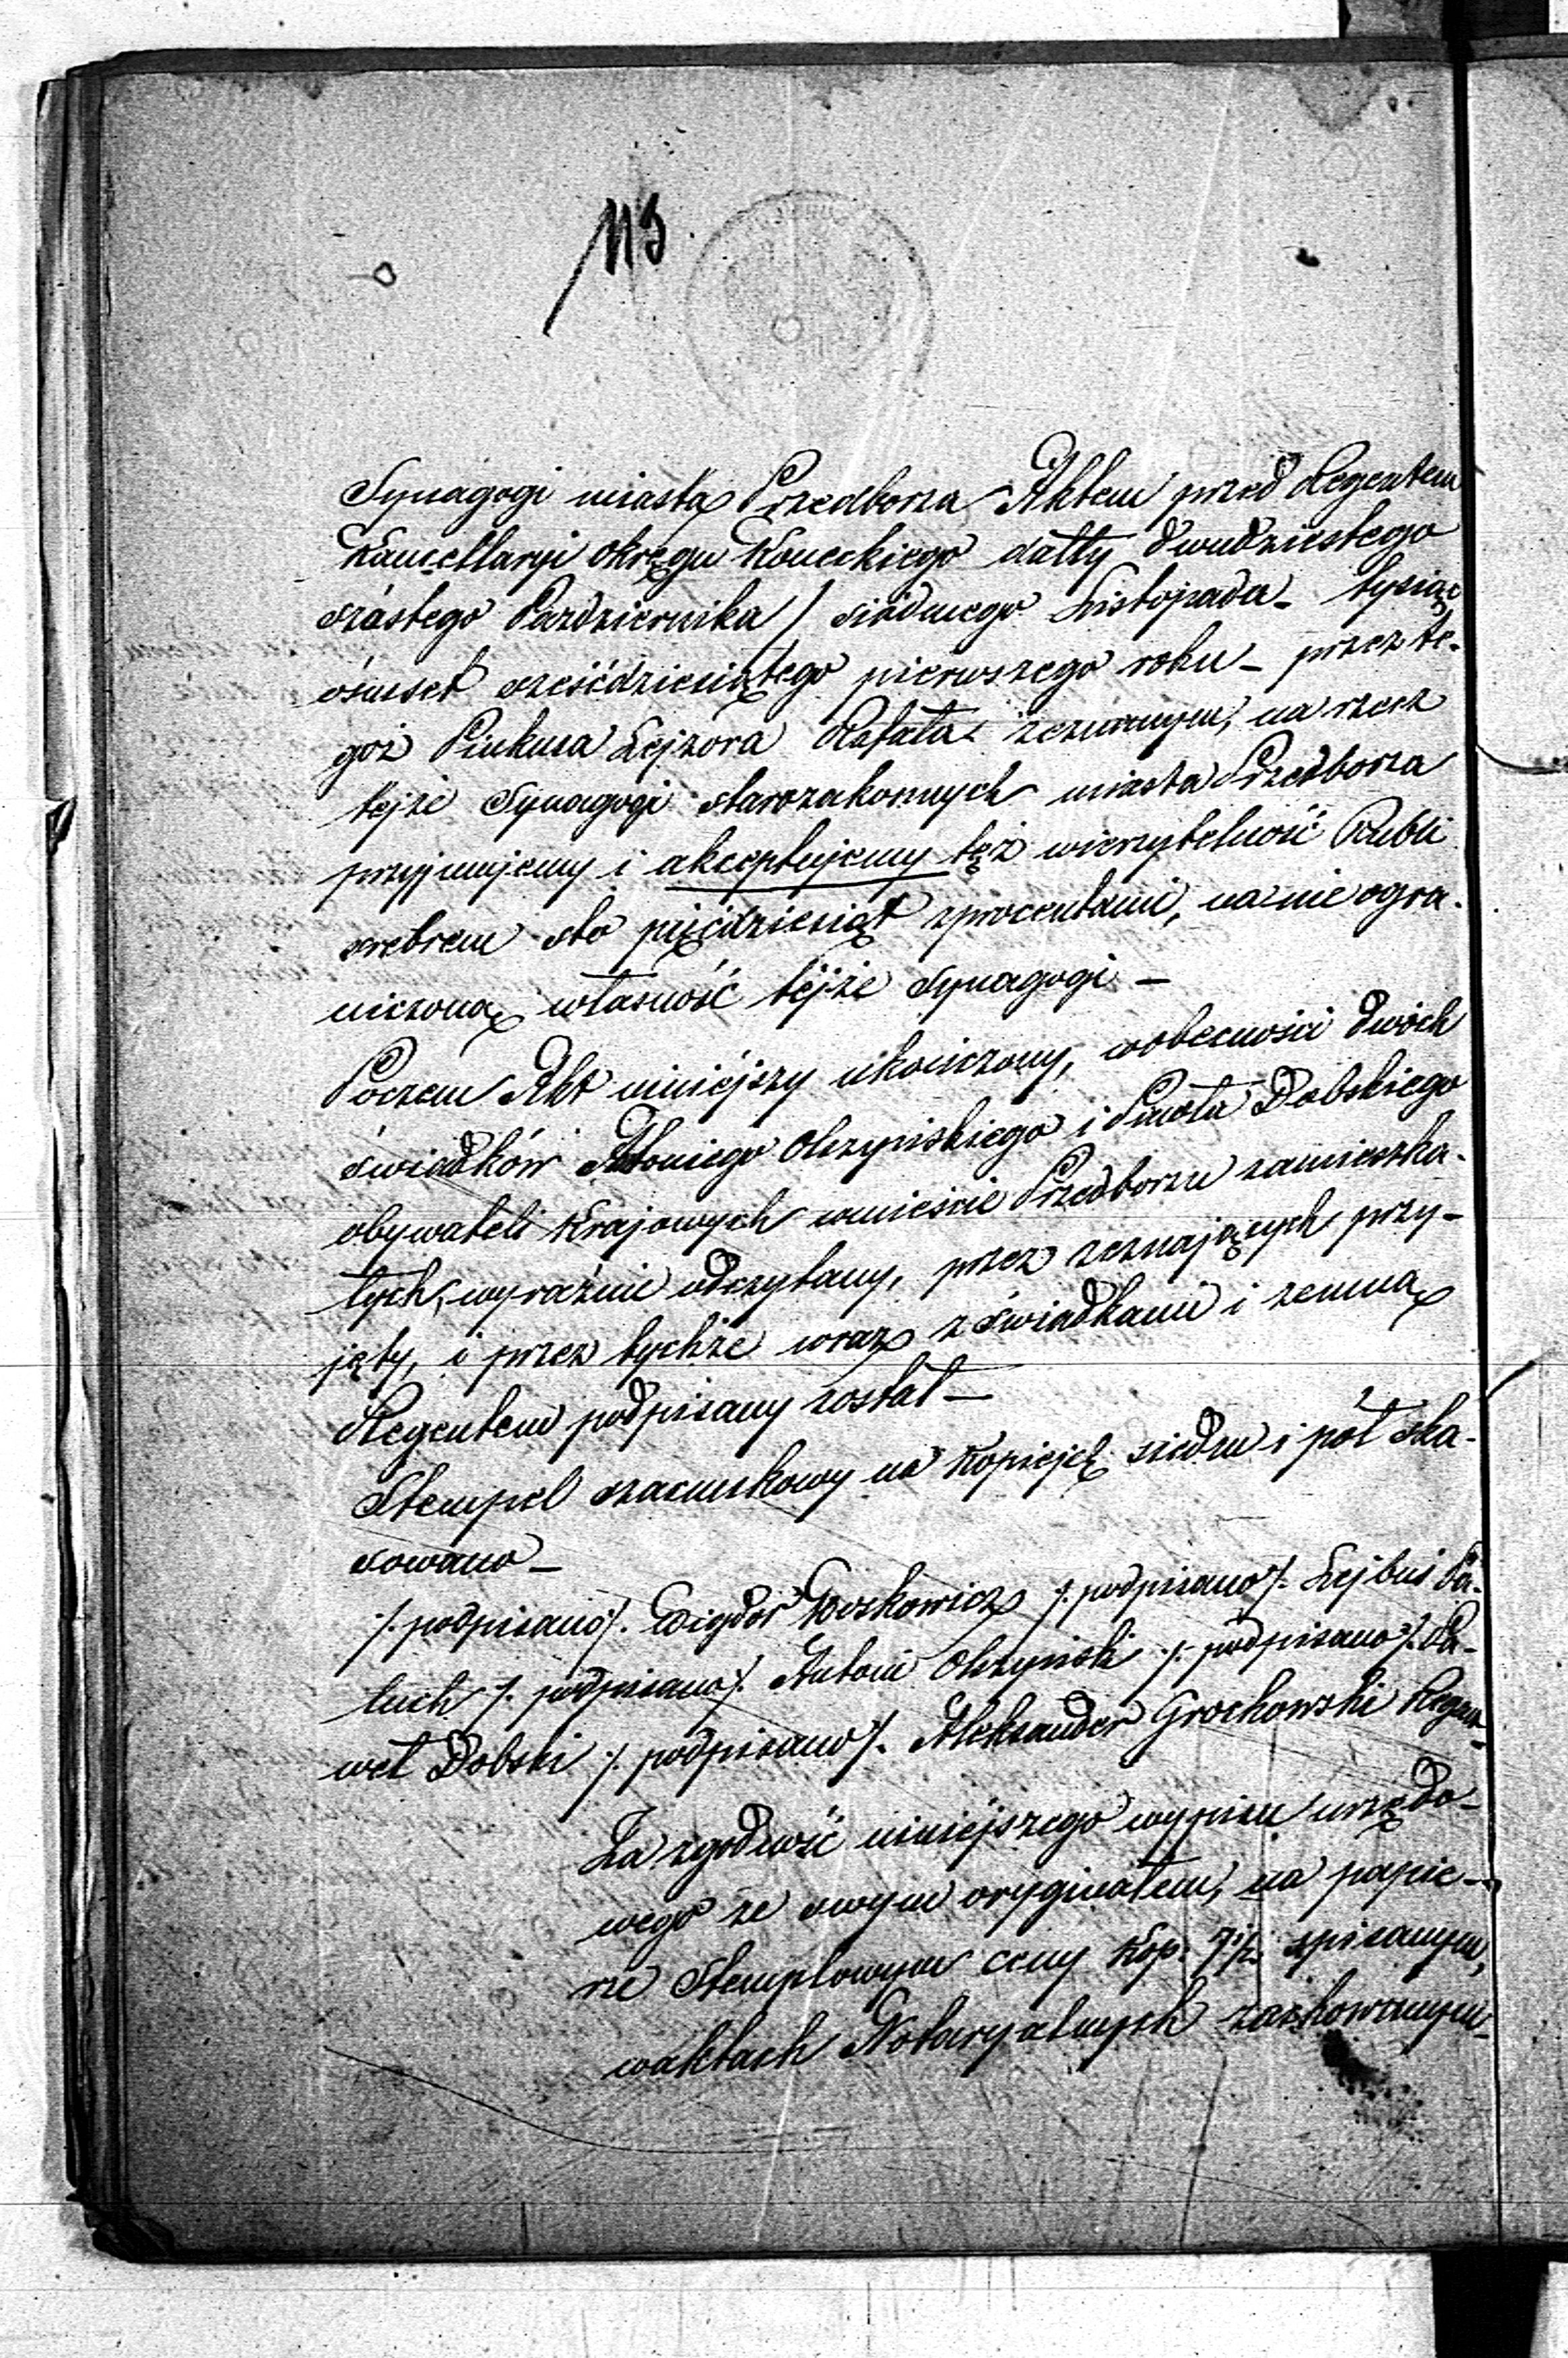 113
Synagogi miasta Przedborza Aktem przed Regentem
Kancellaryi Okręgu Koneckiego datty dwudziestego
szóstego Pazdziernika / siódmego Listopada - tysiąc
ośmset sześćdziesiątego pierwszego roku - przez te-
goż Pinkusa Lejzora Rafała zeznanym, na rzecz
tejże Synagogi starozakonnych miasta Przedborza
przyjmujemy i akceptujemy też wierzytelność Rubli
srebrem sto pięćdziesiąt zprocentami, na nieogra-
niczoną własność tejże Synagogi -
Poczem Akt niniejszy ukończony, wobecności dwóch
świadków Antoniego Olszyńskiego i Pawła Dobskiego
obywateli Krajowych wmieście Przedborzu zamieszka-
łych, wyraźnie odczytany, przez zeznających przy-
jęty, i przez tychże wraz z świadkami i zemną
Regentem podpisany został -
Stempel szacunkowy na Kopiejek siedm i pół ska-
sowano -
/. podpisano /. Wigdor Moskowicz /. podpisano /. Lejbuś Pa-
luch /. podpisano /. Antoni Olszyński /. podpisano /. Pa-
weł Dobski /. podpisano /. Aleksander Grochowski Regent
Za zgodność niniejszego wypisu urzędo-
wego ze swym oryginałem, na papie-
rze Stemplowym ceny Kop. 7 1/2 spisanym,
waktach Notaryalnych zachowanym